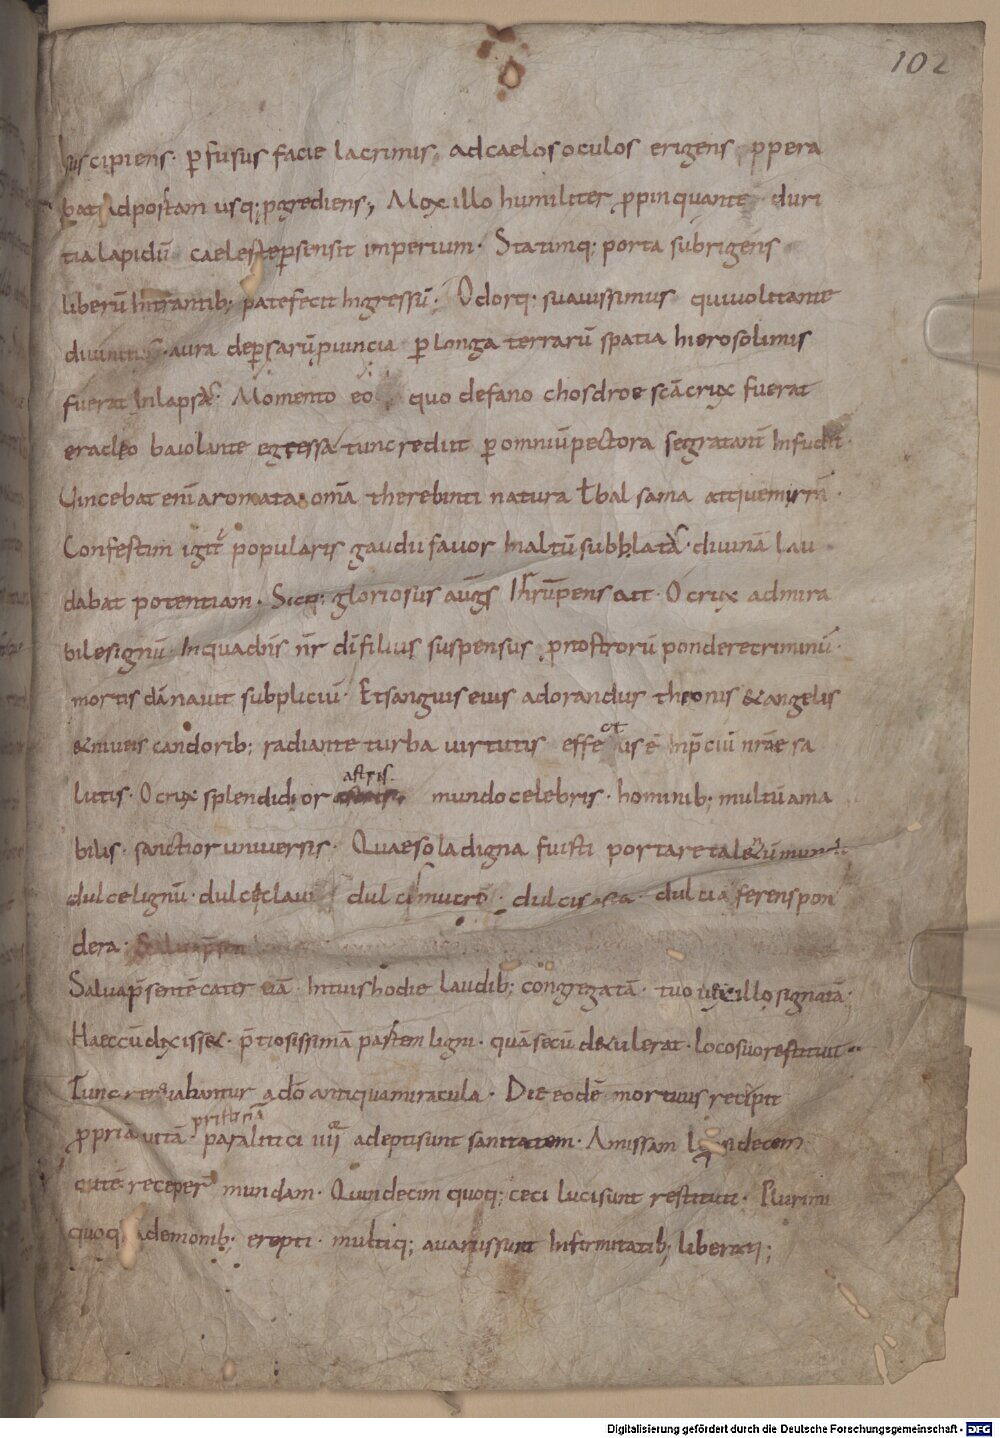 102
suscipiens· ꝑfusus facie lacrimis, ad caelos oculos erigens ꝓpera
bat ad portam usq; ꝓgrediens; Mox illo humiliter ꝓpinquante· duri
tia lapidū caeleste ꝑsensit imperium· Statimq; porta subrigens
liberū intrantib; patefecit ingressū· Odorq; suauissimus qui uolitante
diuinitus· aura de ꝑsarū ꝓuincia ꝑ longa terrarū spatia hierosolimis
fuerat inlapsus· Momento eo quo de fano chosdroe scā crux fuerat
eracleo baiolante egressa tunc rediit ꝑ omniū pectora se gratant̄ infudit·
Uincebat eni aromata omā therebinti natura ł balsama atque mirrā·
Confestim igit popularis gaudii fauor in altū subblatus· diuinā lau
dabat potentiam· Sicq; gloriosus aug̅s̅ inrūpens ait· O crux admira
bile signū· In qua dn̄s nr̄ dī filius suspensus ꝓ nostrorū pondere criminū·
mortis dānauit subpliciū· Et sanguis eius adorandus thronis & angelis
& niueis candorib; radiante turba uirtutis effectus ē in p̄ciū nr̄ae sa
lutis· O crux splendidior astris· mundo celebris· hominib; multū ama
bilis· sanctior uniuersis· Quae sola digna fuisti portare talentū mundi
dulce lignū· dulces claui dulcis mucro· dulcis asta· dulcia ferens pon
dera· Salua p̄sen
Salua p̄sentē cateruā· In tuis hodie laudib; congregatā· tuo uexillo signatā;
Haec cū dixisset· p̄tiosissimā partem ligni· quā secū detulerat· loco suo restituit
Tunc renouabantur ad̄o antiqua miracula· Die eodē mortuus recipit
ꝓpriā uitā· pristinā paralitici iiiior adepti sunt sanitatem· Amissam leprosi decem
cutē receper̄ mundam· Quindecim quoq; ceci luci sunt restituti· Plurimi
quoq; a demonib; erepti· multiq; a uariis sunt infirmitatib; liberati;
Digitalisierung gefördert durch die Deutsche Forschungsgemeinschaft - DFG